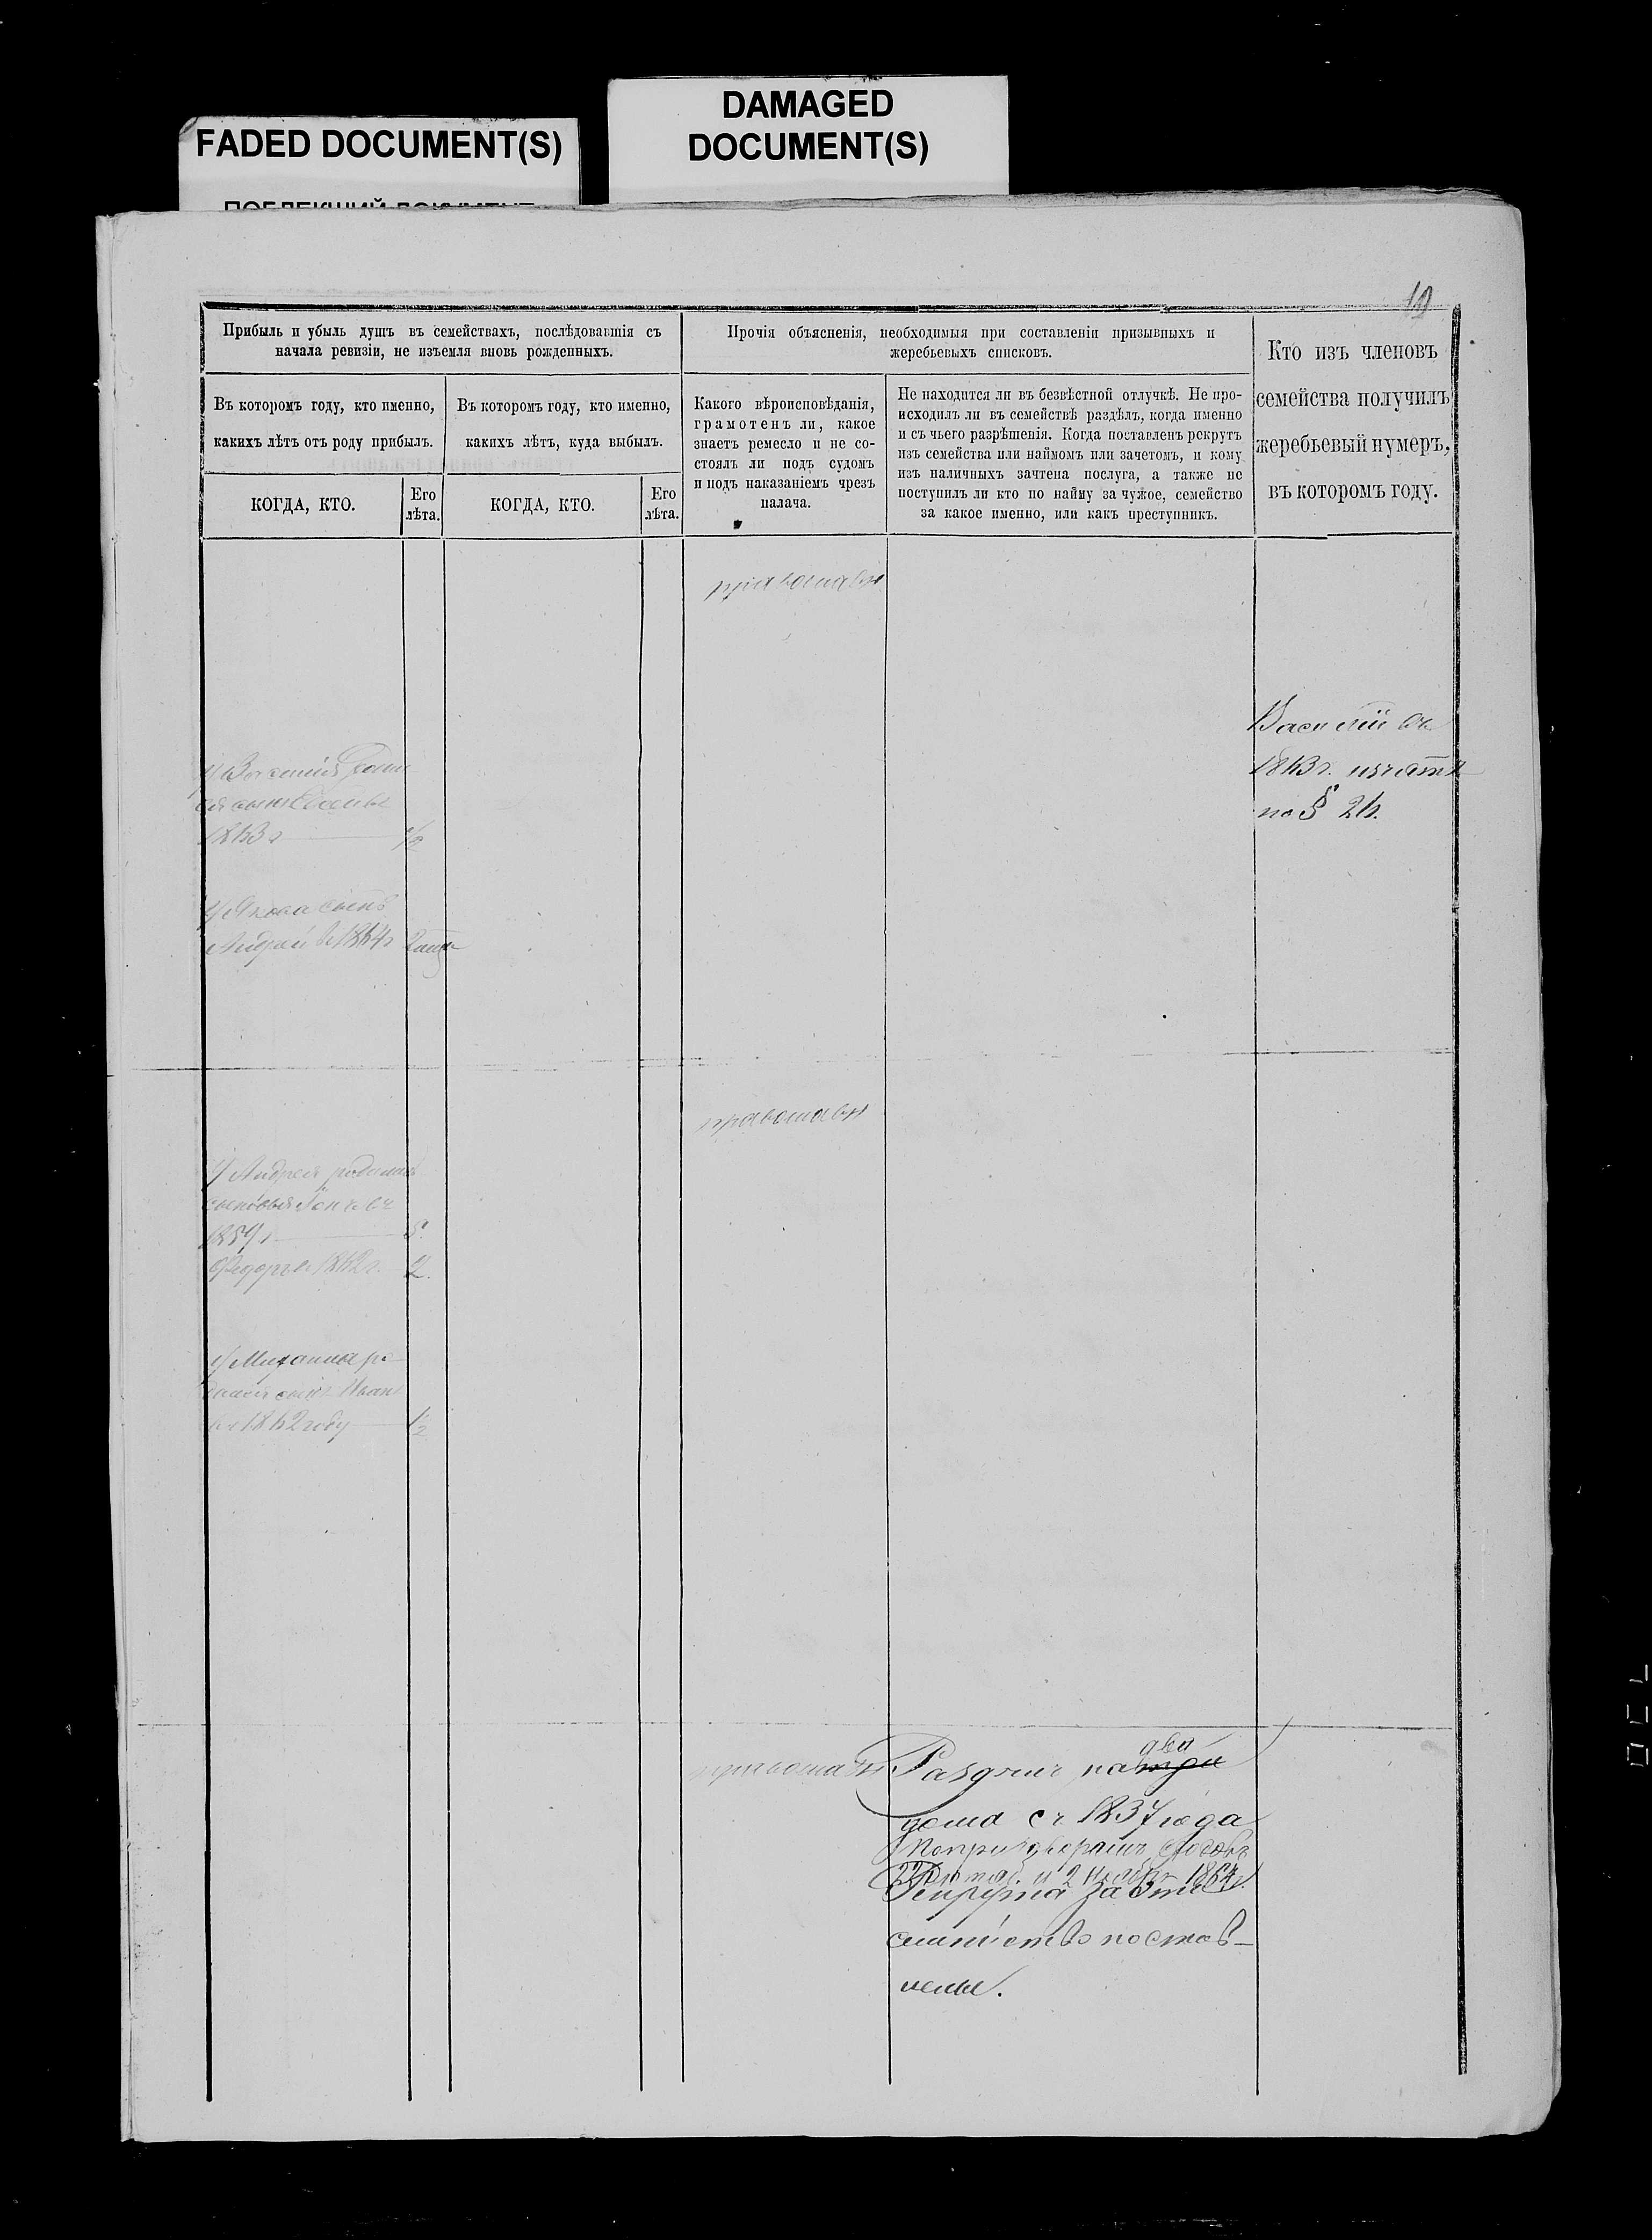 FADED DOCUMENT(S)
DAMAGED
DOCUMENT(S)
Прибыль и убыль душъ въ семействахъ, послѣдовавшія съ
начала ревизіи, не изъемля вновь рожденныхъ.
Прочія объясненія, необходимыя при составленіи призывныхъ и
жеребьевыхъ списковъ.
Кто изъ членовъ
семейства получилъ
жеребьевый нумеръ,
въ которомъ году.
Въ которомъ году, кто именно,
какихъ лѣтъ отъ роду прибылъ.
Въ которомъ году, кто именно,
какихъ лѣтъ, куда выбылъ.
Какого вѣроисповѣданія,
грамотенъ ли, какое
знаетъ ремесло и не со-
стоялъ ли подъ судомъ
и подъ наказаніемъ чрезъ
палача.
Не находится ли въ безвѣстной отлучкѣ. Не про-
исходилъ ли въ семействѣ раздѣлъ, когда именно
и съ чьего разрѣшенія. Когда поставленъ рекрутъ
изъ семейства или наймомъ или зачетомъ, и кому
изъ наличныхъ зачтена послуга, а также не
поступилъ ли кто по найму за чужое, семейство
за какое именно, или какъ преступникъ.
КОГДА, КТО.
Его
лѣта.
КОГДА, КТО.
Его
лѣта.
православн
Василій въ
1863 г. изъятъ
по § 26.
У Василія
сынъ
1863 г 1/2
У Якова сынъ
Андрей въ 1864г
православн
У Андрея родились
сыновья въ
1859 г 5.
Федоръ въ 1862 г. 2.
У Михаила ро-
дился сынъ Иванъ
въ 1862 году 1 1/2
православн
на три
два
дома съ 1837 года
1864 г.
Рекрута за это
семейство постав-
лены.